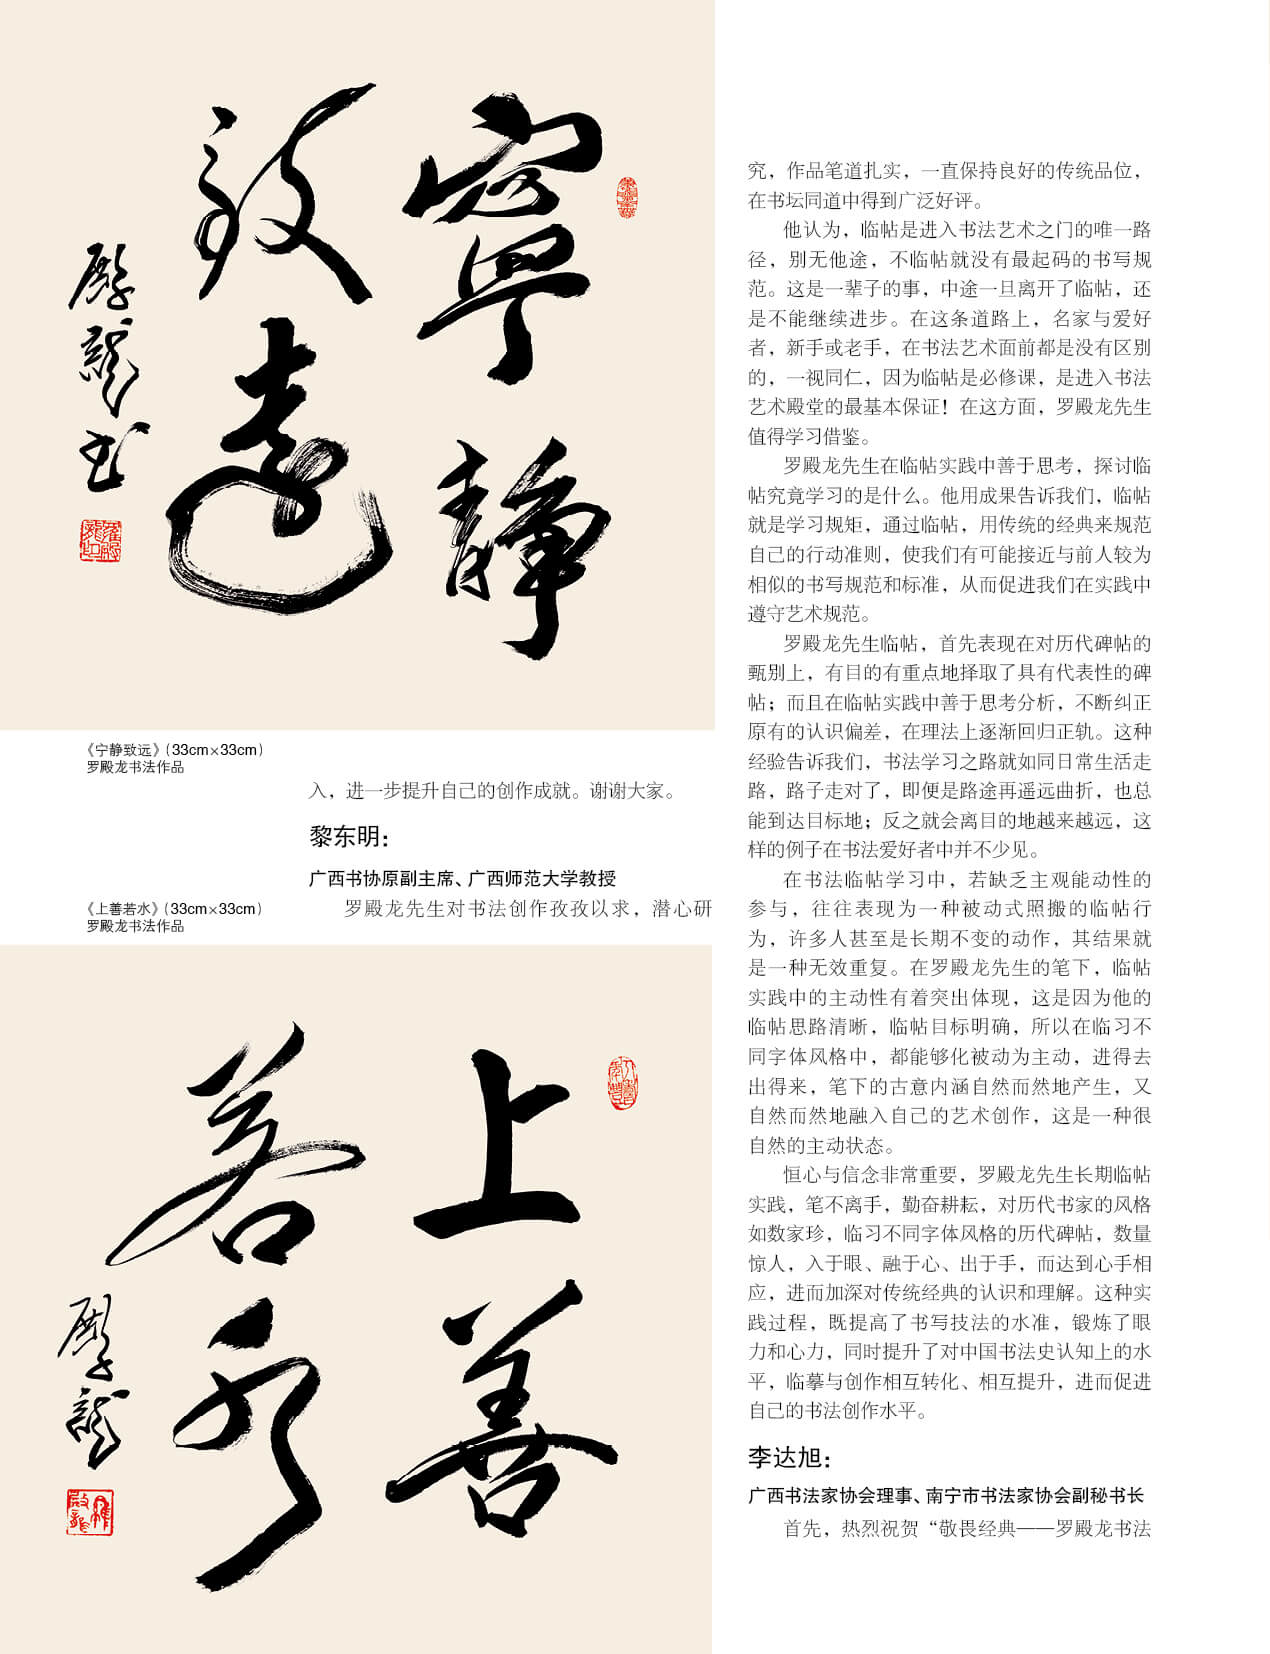 寧靜
致遠
殿龍书
《宁静致远》（33cm×33cm）
罗殿龙书法作品
入，进一步提升自己的创作成就。谢谢大家。
黎东明：
广西书协原副主席、广西师范大学教授
罗殿龙先生对书法创作孜孜以求，潜心研
《上善若水》（33cm×33cm）
罗殿龙书法作品
上善
若水
殿龍
究，作品笔道扎实，一直保持良好的传统品位，
在书坛同道中得到广泛好评。
他认为，临帖是进入书法艺术之门的唯一路
径，别无他途，不临帖就没有最起码的书写规
范。这是一辈子的事，中途一旦离开了临帖，还
是不能继续进步。在这条道路上，名家与爱好
者，新手或老手，在书法艺术面前都是没有区别
的，一视同仁，因为临帖是必修课，是进入书法
艺术殿堂的最基本保证！在这方面，罗殿龙先生
值得学习借鉴。
罗殿龙先生在临帖实践中善于思考，探讨临
帖究竟学习的是什么。他用成果告诉我们，临帖
就是学习规矩，通过临帖，用传统的经典来规范
自己的行动准则，使我们有可能接近与前人较为
相似的书写规范和标准，从而促进我们在实践中
遵守艺术规范。
罗殿龙先生临帖，首先表现在对历代碑帖的
甄别上，有目的有重点地择取了具有代表性的碑
帖；而且在临帖实践中善于思考分析，不断纠正
原有的认识偏差，在理法上逐渐回归正轨。这种
经验告诉我们，书法学习之路就如同日常生活走
路，路子走对了，即便是路途再遥远曲折，也总
能到达目标地；反之就会离目的地越来越远，这
样的例子在书法爱好者中并不少见。
在书法临帖学习中，若缺乏主观能动性的
参与，往往表现为一种被动式照搬的临帖行
为，许多人甚至是长期不变的动作，其结果就
是一种无效重复。在罗殿龙先生的笔下，临帖
实践中的主动性有着突出体现，这是因为他的
临帖思路清晰，临帖目标明确，所以在临习不
同字体风格中，都能够化被动为主动，进得去
出得来，笔下的古意内涵自然而然地产生，又
自然而然地融入自己的艺术创作，这是一种很
自然的主动状态。
恒心与信念非常重要，罗殿龙先生长期临帖
实践，笔不离手，勤奋耕耘，对历代书家的风格
如数家珍，临习不同字体风格的历代碑帖，数量
惊人，入于眼、融于心、出于手，而达到心手相
应，进而加深对传统经典的认识和理解。这种实
践过程，既提高了书写技法的水准，锻炼了眼
力和心力，同时提升了对中国书法史认知上的水
平，临摹与创作相互转化、相互提升，进而促进
自己的书法创作水平。
李达旭：
广西书法家协会理事、南宁市书法家协会副秘书长
首先，热烈祝贺“敬畏经典——罗殿龙书法